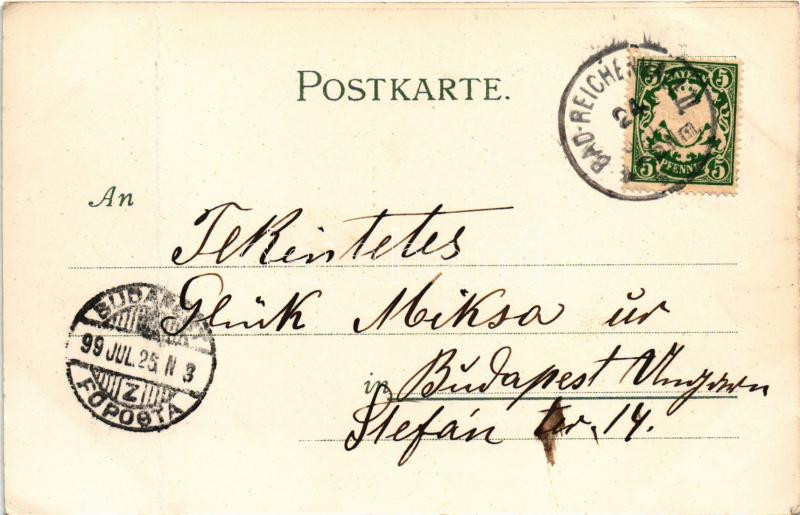 POSTKARTE.
BAD-REICHENHALL
24
BAYERN
5 5
PFENNIG
5 5
An
Tekintetes
Glück Miksa úr
in Budapest Ungarn
Stefán tér. 14.
BUDAPEST
99 JUL. 25 N 3
Z
FŐPOSTA